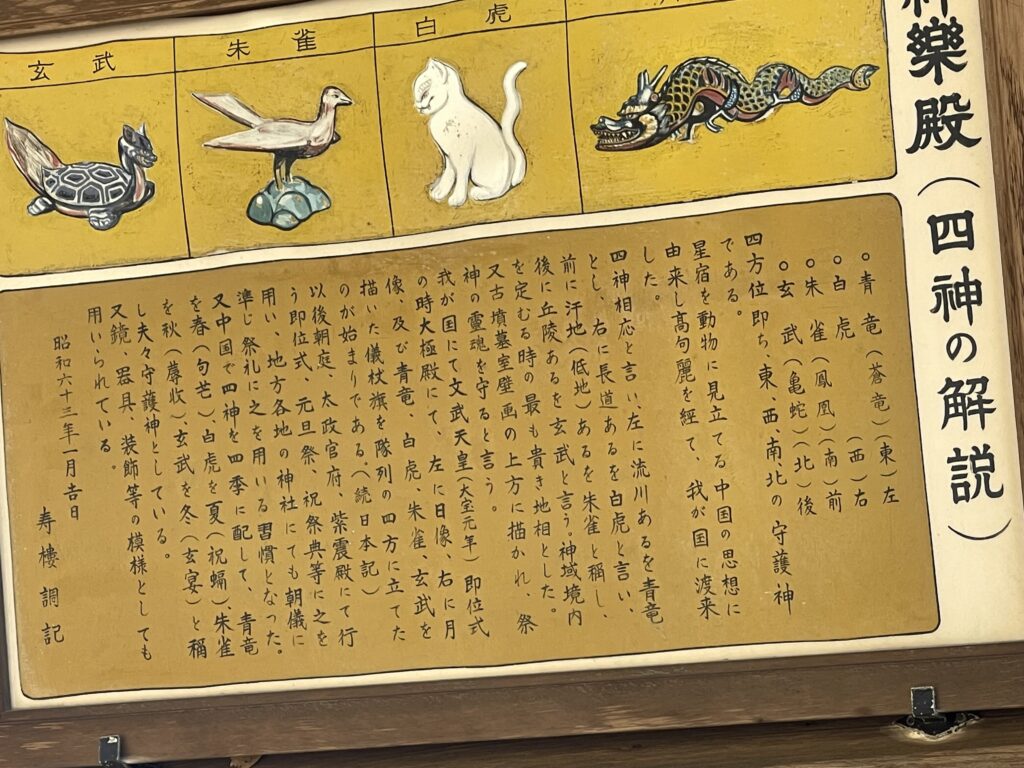 樂殿（四神の解説）
白虎
朱雀
玄武
○青竜（蒼竜）（東）左
○白虎　　　　（西）右
○朱雀（鳳凰）（南）前
○玄武（亀蛇）（北）後
四方位即ち、東、西、南、北の守護神
である。
星宿を動物に見立てる中国の思想に
由来し高句麗を経て、我が国に渡来
した。
四神相応と言い、左に流川あるを青竜
とし、右に長道あるを白虎と言い、
前に汗地（低地）あるを朱雀と稱し、
後に丘陵あるを玄武と言う。神域境内
を定むる時の最も貴き地相とした。
又古墳墓室壁画の上方に描かれ、祭
神の霊魂を守ると言う。
我が国にて文武天皇（大宝元年）即位式
の時大極殿にて、左に日像、右に月
像、及び青竜、白虎、朱雀、玄武を
描いた儀杖旗を隊列の四方に立てた
のが始まりである。（続日本記）
以後朝庭、太政官府、紫震殿にて行
う即位式、元旦祭、祝祭典等に之を
用い、地方各地の神社にても朝儀に
準じ祭礼に之を用いる習慣となった。
又中国で四神を四季に配して、青竜
を春（句芒）、白虎を夏（祝螎）、朱雀
を秋（蓐收）、玄武を冬（玄宴）と稱
し夫々守護神としている。
又鏡、器具、装飾等の模様としても
用いられている。
昭和六十三年一月吉日
寿楼調記